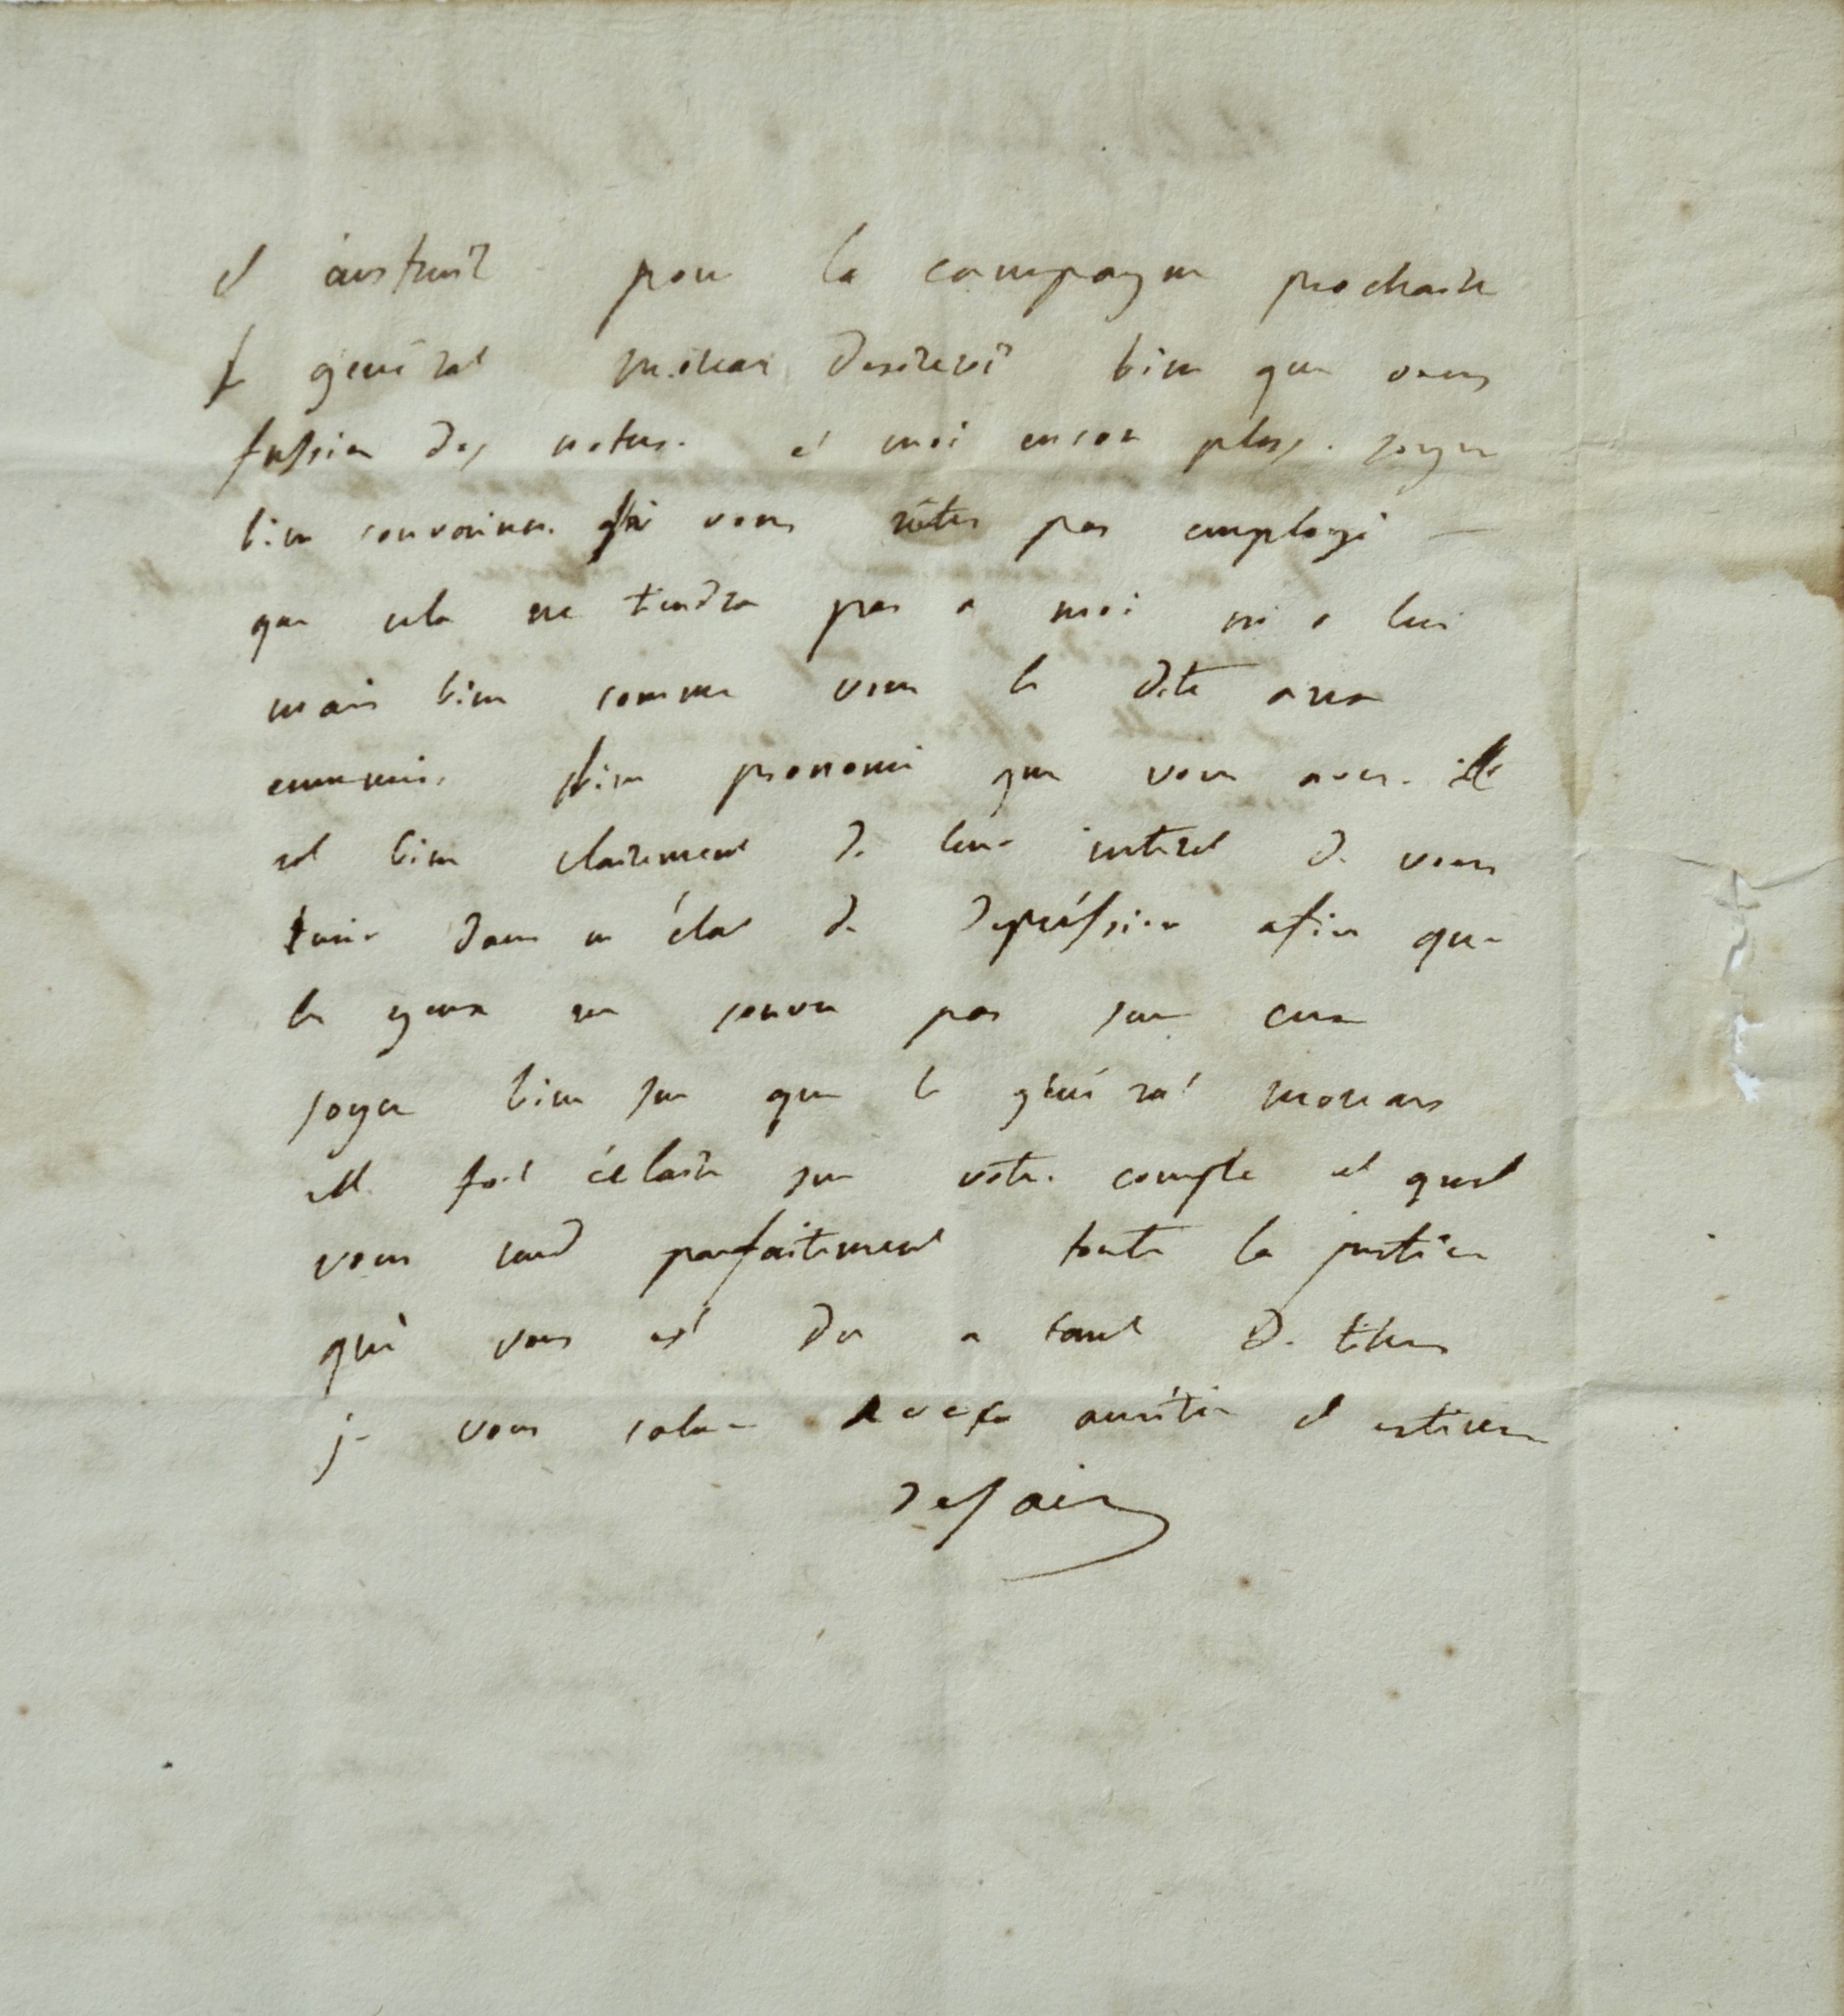 et instruit pour la campagne prochaine
le général moreau desireroit bien que vous
fussiez des notres. et moi encore plus. soyez
bien convaincu si vous nètes pas employé —
que cela ne tiendra pas a moi ni a lui
mais bien comme vous le dite aux
ennemis bien prononcé que vous avez. il
est bien clairement de leur interet de vous
tenir dans un état de depréssion afin que
les yeux ne souvre pas sur eux
soyez bien sur que le général moreau
est fort éclairé sur votre compte et quil
vous rend parfaitement toute la justice
qui vous est du a tant de titres
je vous salue avec amitié et estime
desaix